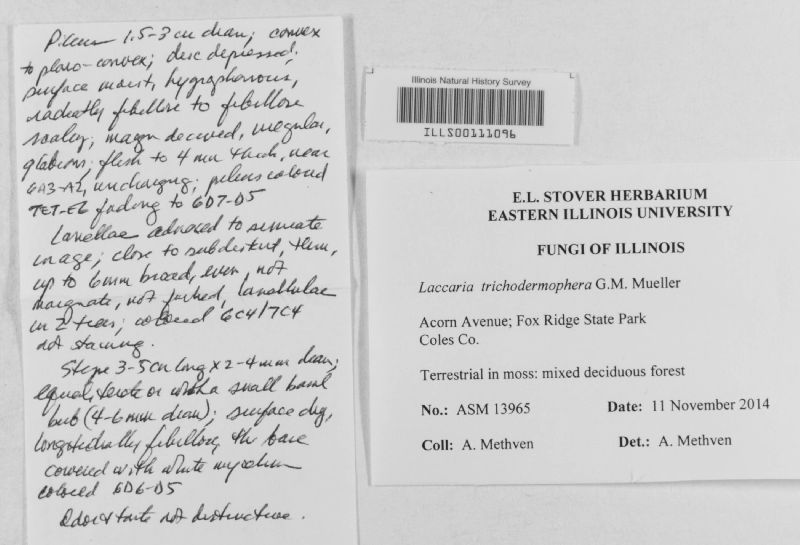 Pileus 1.5-3 cm diam; convex
to plano-convex; disc depressed;
surface moist, hygrophanous,
radially fibrillose to fibrillose
scaley; margin decurved, irregular,
glabrous; flesh to 4 mm thick, near
6A3-A2, unchanging; pileus colored
7E7-E6 fading to 6D7-D5
Lamellae adnexed to sinuate
in age; close to subdistant, thin,
up to 6mm broad, even, not
marginate, not forked, lamellulae
in 2 tiers; colored 6C4/7C4
not staining.
Stipe 3-5 cm long x 2-4 mm diam;
equal, terete or with a small basal
bulb (4-6 mm diam); surface dry,
longitudinally fibrillose, the base
covered with white mycelium
colored 6D6-D5
Odor & taste not distinctive.
Illinois Natural History Survey
ILLS00111096
E.L. STOVER HERBARIUM
EASTERN ILLINOIS UNIVERSITY
FUNGI OF ILLINOIS
Laccaria trichodermophera G.M. Mueller
Acorn Avenue; Fox Ridge State Park
Coles Co.
Terrestrial in moss: mixed deciduous forest
No.: ASM 13965 Date: 11 November 2014
Coll: A. Methven Det.: A. Methven